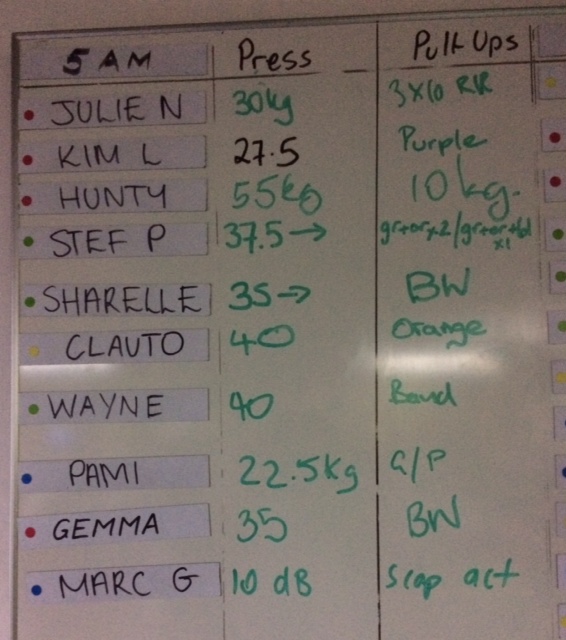 5 AM Press Pull Ups
JULIE N 30kg 3x10 RR
KIM L 27.5 Purple
HUNTY 55kg 10kg.
STEF P 37.5 → gr+orx2/gr+or+bl x1
SHARELLE 35 → BW
CLAUTO 40 Orange
WAYNE 40 Band
PAMI 22.5kg G/P
GEMMA 35 BW
MARC G 10 dB Scap act